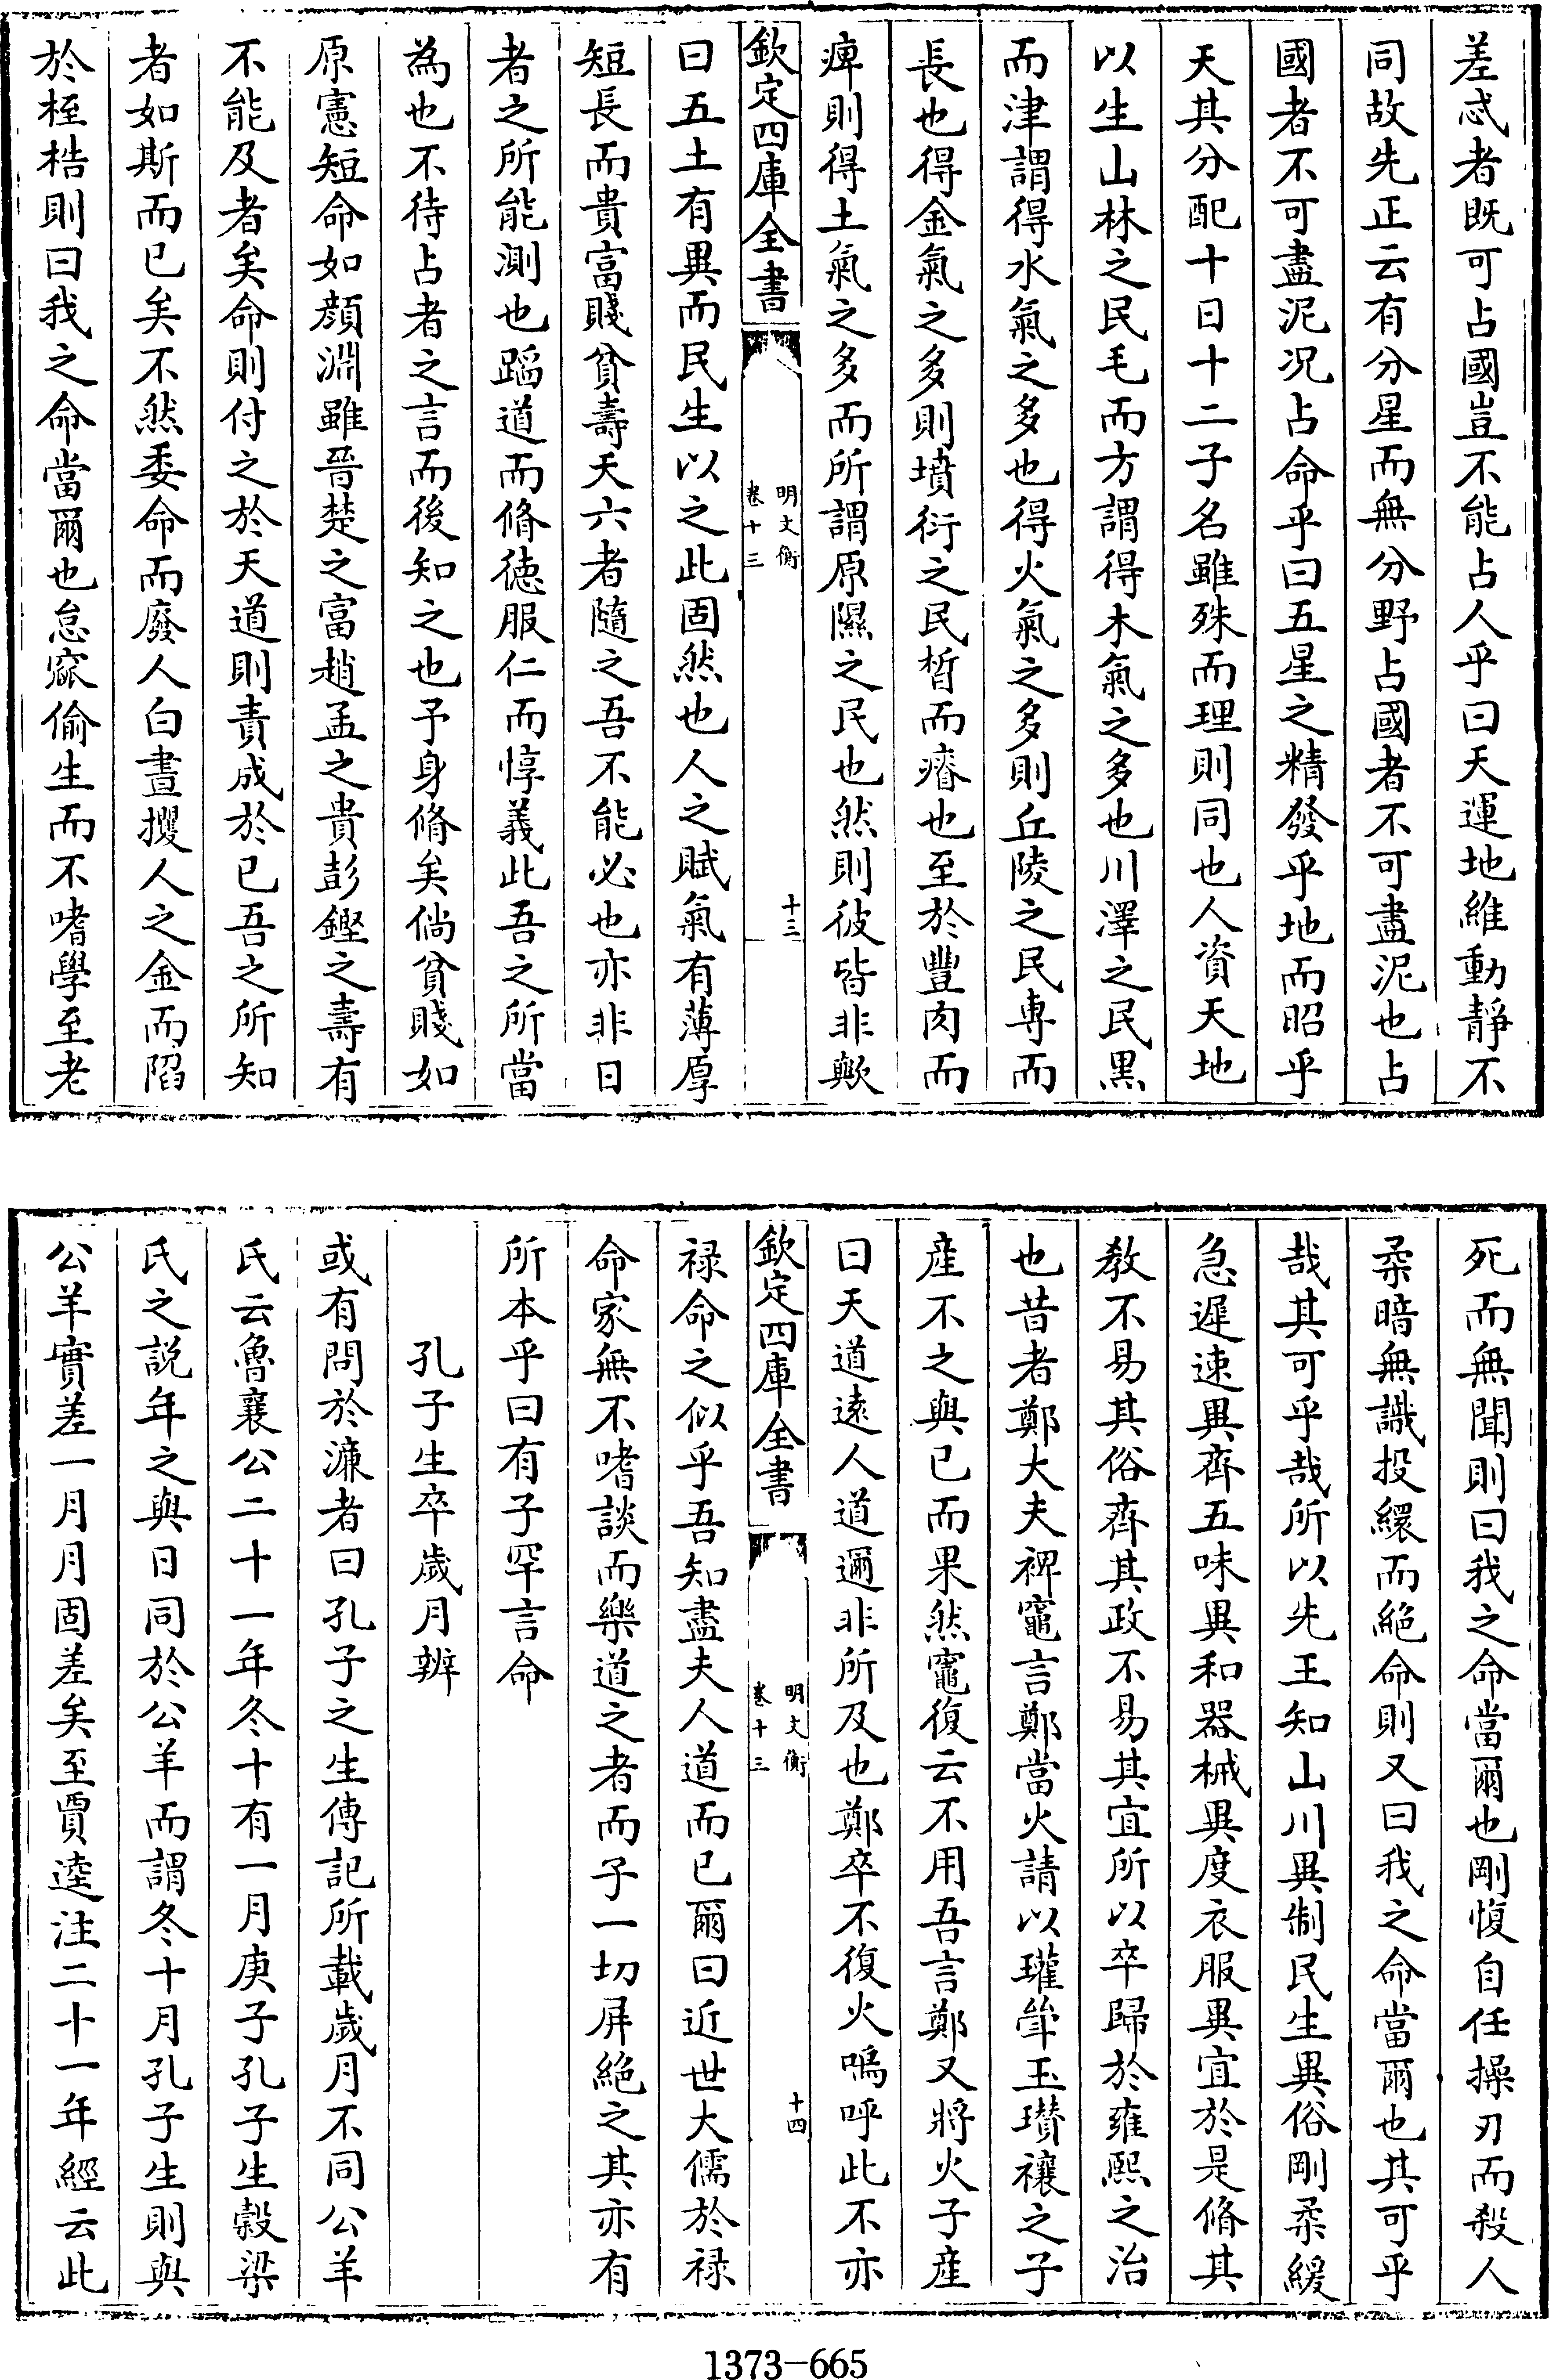 差忒者既可占國豈不能占人乎曰天運地維動靜不
同故先正云有分星而無分野占國者不可盡泥也占
國者不可盡泥况占命乎曰五星之精發乎地而昭乎
天其分配十日十二子名雖殊而理則同也人資天地
以生山林之民毛而方謂得木氣之多也川澤之民黑
而津謂得水氣之多也得火氣之多則丘陵之民專而
長也得金氣之多則墳衍之民晳而瘠也至於豐肉而
痺則得土氣之多而所謂原隰之民也然則彼皆非歟
欽定四庫全書
明文衡
卷十三
十三
曰五土有異而民生以之此固然也人之賦氣有薄厚
短長而貴富賤貧壽夭六者隨之吾不能必也亦非日
者之所能測也蹈道而脩徳服仁而惇義此吾之所當
為也不待占者之言而後知之也予身脩矣倘貧賤如
原憲短命如顔淵雖晉楚之富趙孟之貴彭鏗之壽有
不能及者矣命則付之於天道則責成於已吾之所知
者如斯而已矣不然委命而廢人白晝攫人之金而陷
於桎梏則曰我之命當爾也怠窳偷生而不嗜學至老
死而無聞則曰我之命當爾也剛愎自任操刃而殺人
柔暗無識投繯而絶命則又曰我之命當爾也其可乎
哉其可乎哉所以先王知山川異制民生異俗剛柔緩
急遲速異齊五味異和器械異度衣服異宜於是脩其
教不易其俗齊其政不易其宜所以卒歸於雍熙之治
也昔者鄭大夫裨竈言鄭當火請以瓘斝玉瓚禳之子
産不之與已而果然竈復云不用吾言鄭又將火子産
曰天道逺人道邇非所及也鄭卒不復火嗚呼此不亦
欽定四庫全書
明文衡
卷十三
十四
禄命之似乎吾知盡夫人道而已爾曰近世大儒於禄
命家無不嗜談而樂道之者而子一切屏絶之其亦有
所本乎曰有子罕言命
孔子生卒歲月辨
或有問於濂者曰孔子之生傳記所載歲月不同公羊
氏云魯襄公二十一年冬十有一月庚子孔子生榖梁
氏之説年之與日同於公羊而謂冬十月孔子生則與
公羊實差一月月固差矣至賈逵注二十一年經云此
1373—665